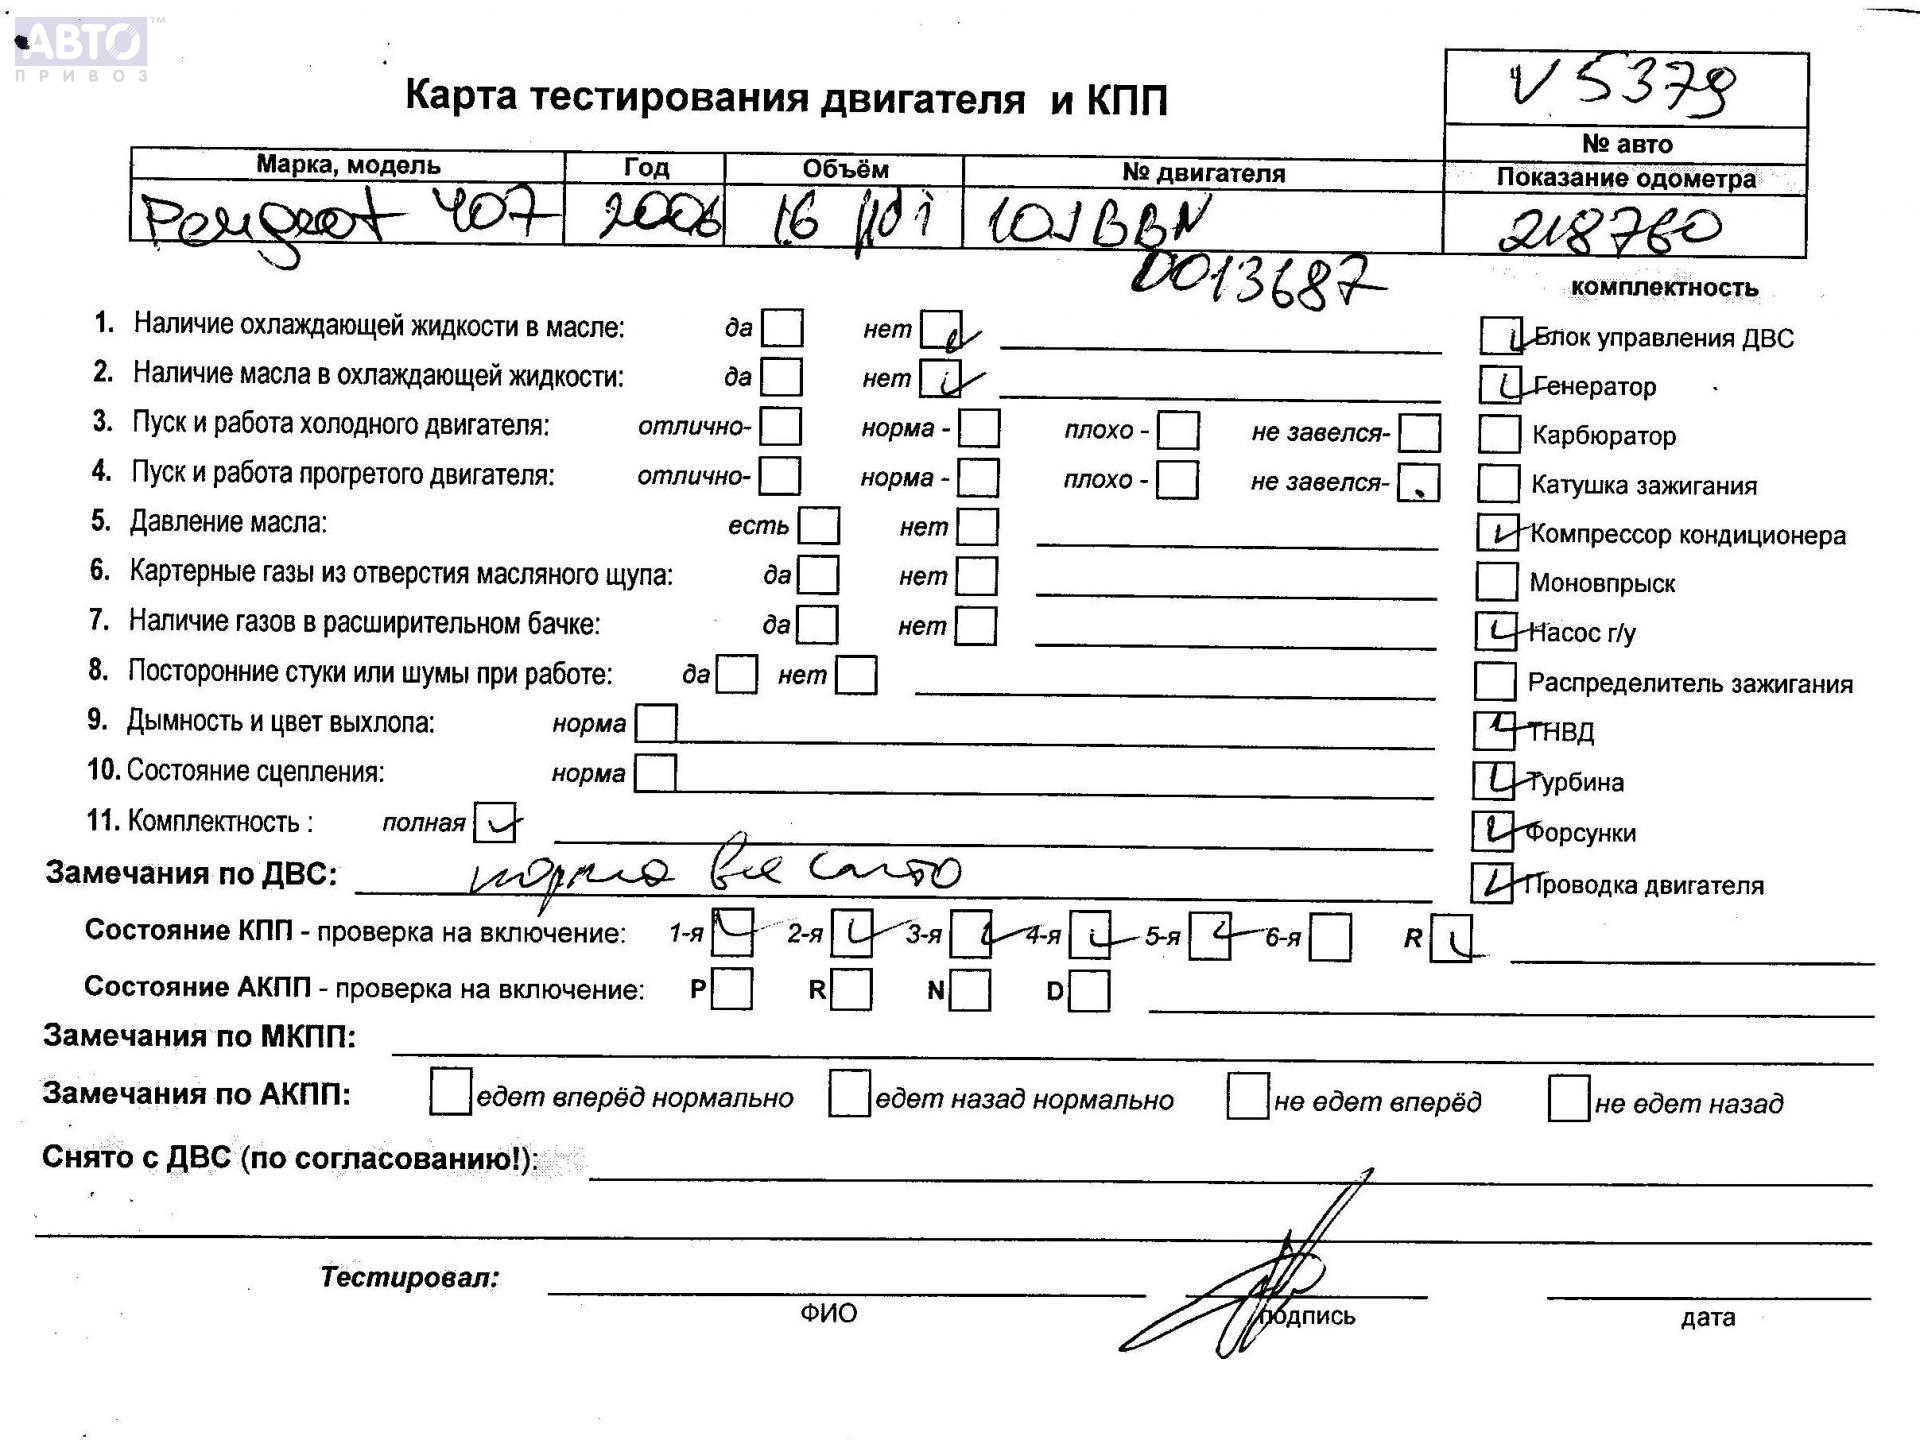 АВТО™
ПРИВОЗ
Карта тестирования двигателя и КПП
V 5379
№ авто
Марка, модель Год Объём № двигателя Показание одометра
Peugeot 407 2006 1.6 HDi 10JBBN 218760
0013687
комплектность
1. Наличие охлаждающей жидкости в масле: да нет
Блок управления ДВС
2. Наличие масла в охлаждающей жидкости: да нет
Генератор
3. Пуск и работа холодного двигателя: отлично- норма - плохо - не завелся-
Карбюратор
4. Пуск и работа прогретого двигателя: отлично- норма - плохо - не завелся-
Катушка зажигания
5. Давление масла: есть нет
Компрессор кондиционера
6. Картерные газы из отверстия масляного щупа: да нет
Моновпрыск
7. Наличие газов в расширительном бачке: да нет
Насос г/у
8. Посторонние стуки или шумы при работе: да нет
Распределитель зажигания
9. Дымность и цвет выхлопа: норма
ТНВД
10. Состояние сцепления: норма
Турбина
11. Комплектность : полная
Форсунки
Замечания по ДВС: норма
Проводка двигателя
Состояние КПП - проверка на включение: 1-я 2-я 3-я 4-я 5-я 6-я R
Состояние АКПП - проверка на включение: P R N D
Замечания по МКПП:
Замечания по АКПП: едет вперёд нормально едет назад нормально не едет вперёд не едет назад
Снято с ДВС (по согласованию!):
Тестировал:
ФИО подпись дата